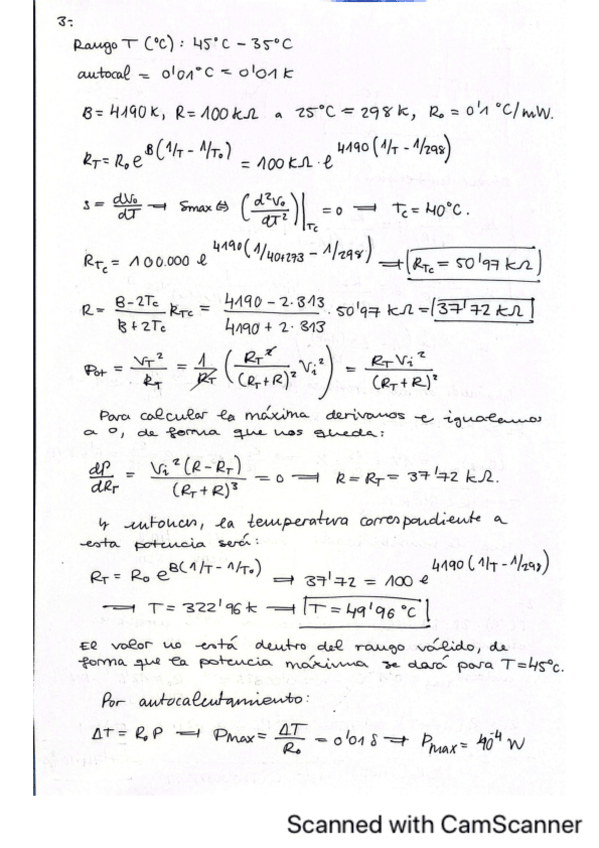 3:
Rango T (°C): 45°C - 35°C
autocal = 0'01°C = 0'01 K
B = 4190 K, R = 100 kΩ a 25°C = 298 K, R₀ = 0'1 °C/mW.
R_T = R₀ e^{B(1/T - 1/T₀)} = 100 kΩ · e^{4190(1/T - 1/298)}
s = dV₀/dT → s_max ⇔ (d²V₀/dT²)|_{Tc} = 0 → Tc = 40°C.
R_{Tc} = 100.000 e^{4190(1/40+273 - 1/298)} → R_{Tc} = 50'97 kΩ
R = (B - 2Tc)/(B + 2Tc) R_{Tc} = (4190 - 2·313)/(4190 + 2·313) · 50'97 kΩ = 37'72 kΩ
Pot = V_T²/R_T = 1/R_T (R_T²/(R_T + R)² V_i²) = R_T V_i²/(R_T + R)²
Para calcular la máxima derivamos e igualamos
a 0, de forma que nos queda:
dP/dR_T = V_i²(R - R_T)/(R_T + R)³ = 0 → R = R_T = 37'72 kΩ.
Y entonces, la temperatura correspondiente a
esta potencia será:
R_T = R₀ e^{B(1/T - 1/T₀)} → 37'72 = 100 e^{4190(1/T - 1/298)}
→ T = 322'96 K → T = 49'96 °C
El valor no está dentro del rango válido, de
forma que la potencia máxima se dará para T = 45°C.
Por autocalentamiento:
ΔT = R₀ P → P_max = ΔT/R₀ = 0'01 δ → P_max = 10⁻⁴ W
Scanned with CamScanner